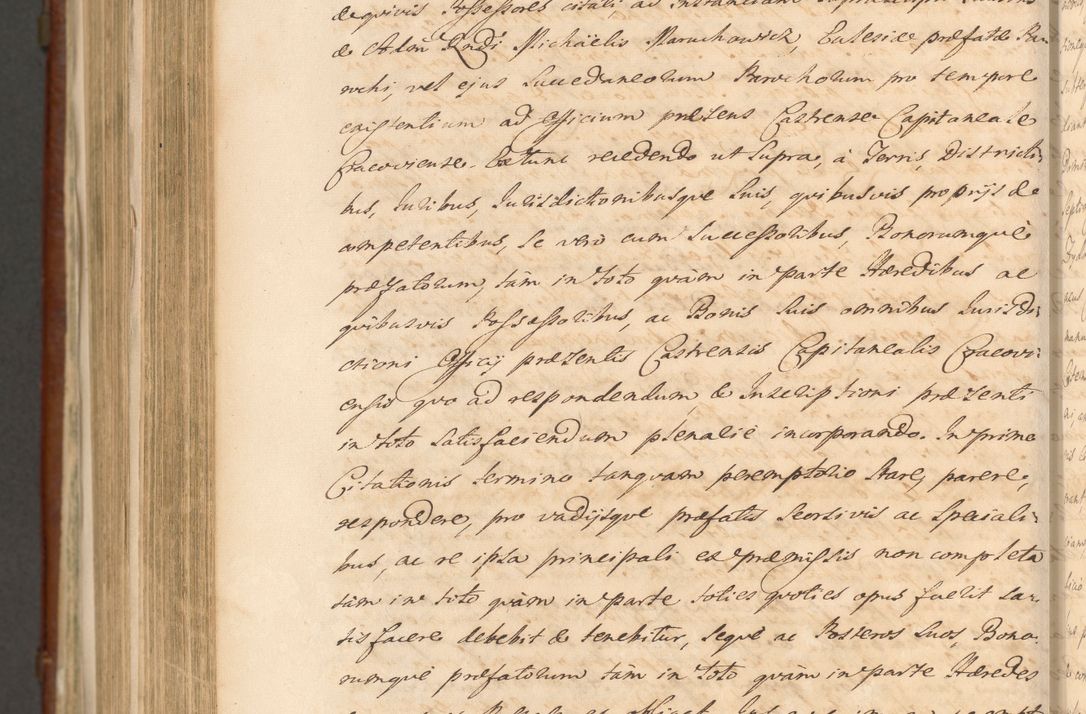 de quivis Possessores citati ad Instantiam
& Adm Rndi Michaëlis Maruchowicz, Ecclesiæ præfatæ Pa-
rochi, vel ejus Succedaneorum Parochorum pro tempore
existentium ad Officium præsens Castrense Capitaneale
Cracoviense. Extunc recedendo ut Supra, à Terris, Districti-
bus, Juribus, Jurisdictionibusque Suis, quibusvis proprijs &
competentibus, Se verò cum Successoribus, Bonorumquè
præfatorum, tàm in toto quàm in parte Hæredibus ac
quibusvis Possessoribus, ac Bonis Suis omnibus Jurisdi-
ctioni Officij præsentis Castrensis Capitanealis Cracovi-
ensis quo ad respondendum & Inscriptioni præsenti
in toto Satisfaciendum plenariè incorporando. In primo
Citationis termino tanquam peremptorio Stare, parere,
respondere, pro vadijsque præfatis Seorsivis ac Speciali-
bus, ac re ipsa principali ex præmissis non completa
tàm in toto quàm in parte toties quoties opus fuerit Sa-
tisfacere debebit & tenebitur, Sequè ac Posteros Suos, Bono-
rumquè præfatorum tàm in toto quàm in parte Hæredes